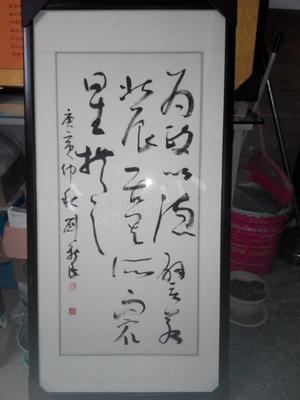 为政以德譬若
北辰居其所而众
星拱之
庚寅仲秋劉